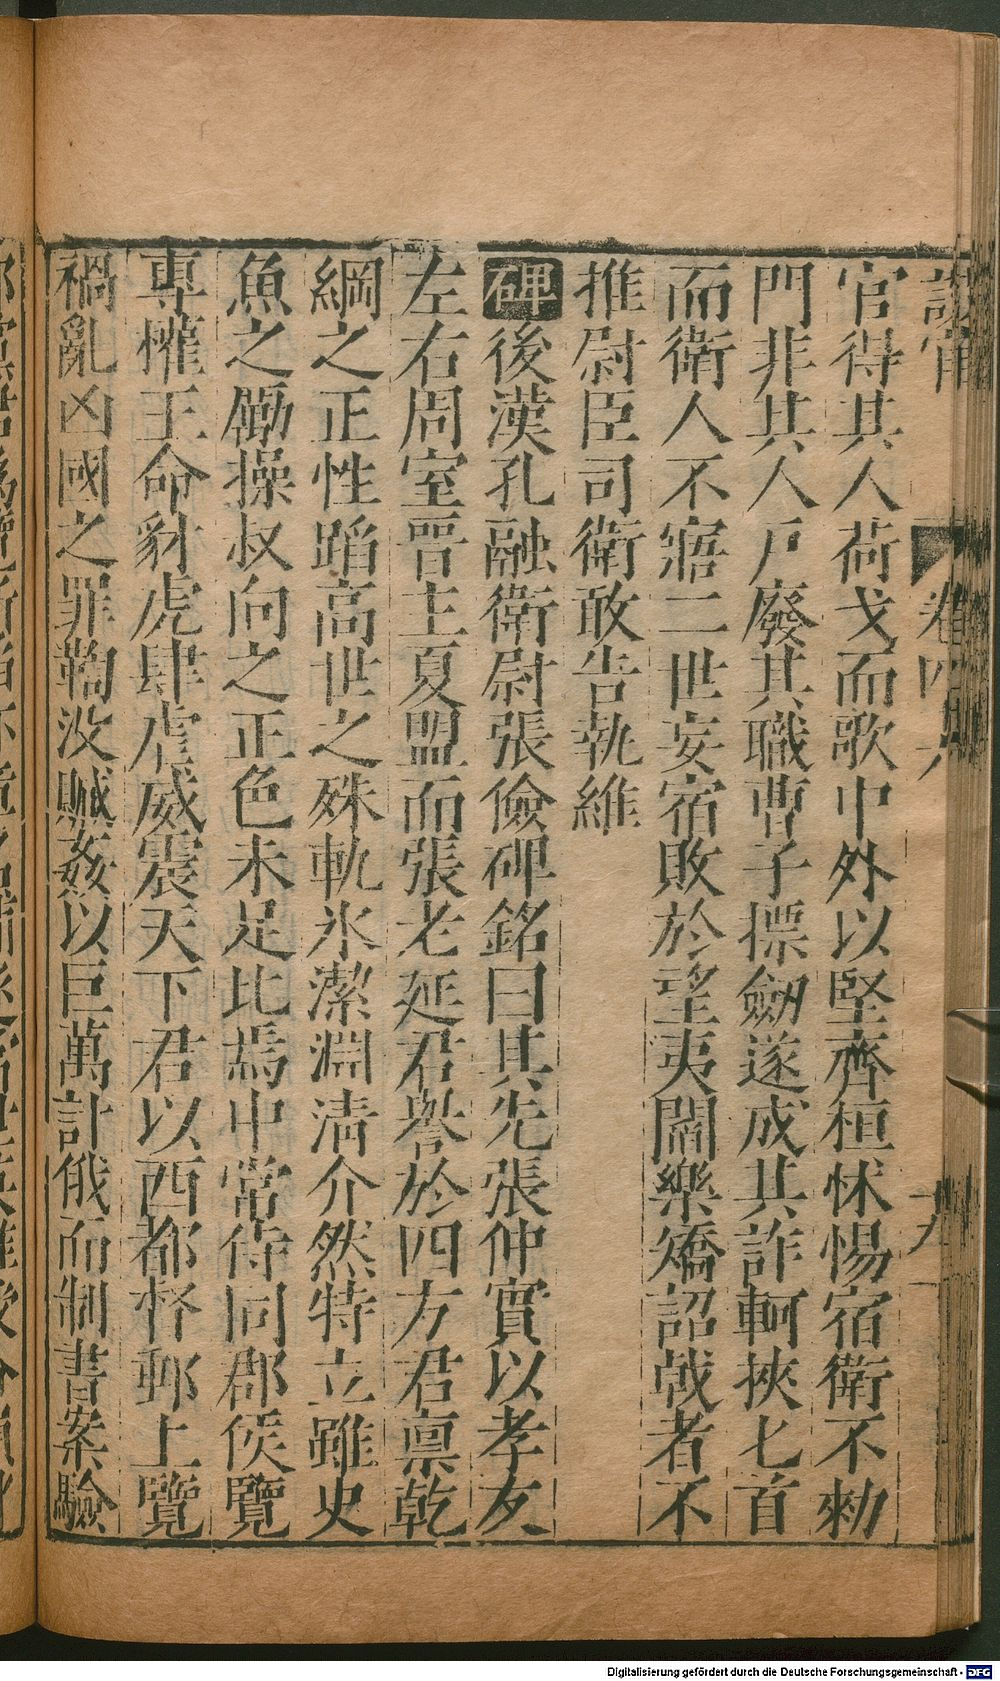 設官
卷四十八
十九
官得其人荷戈而歌中外以堅齊桓怵惕宿衛不勑
門非其人戶廢其職曹子摽劒遂成其詐軻挾匕首
而衛人不寤二世妄宿敗於望夷閻樂矯詔戟者不
推尉臣司衛敢告執維
碑後漢孔融衛尉張儉碑銘曰其先張仲實以孝友
左右周室晉主夏盟而張老延君譽於四方君禀乾
綱之正性蹈高世之殊軌氷潔淵清介然特立雖史
魚之勵操叔向之正色未足比焉中常侍同郡侯覽
專權王命豺虎肆虐威震天下君以西都督郵上覽
禍亂凶國之罪鞫没贓姦以巨萬計俄而制書案驗
Digitalisierung gefördert durch die Deutsche Forschungsgemeinschaft - DFG